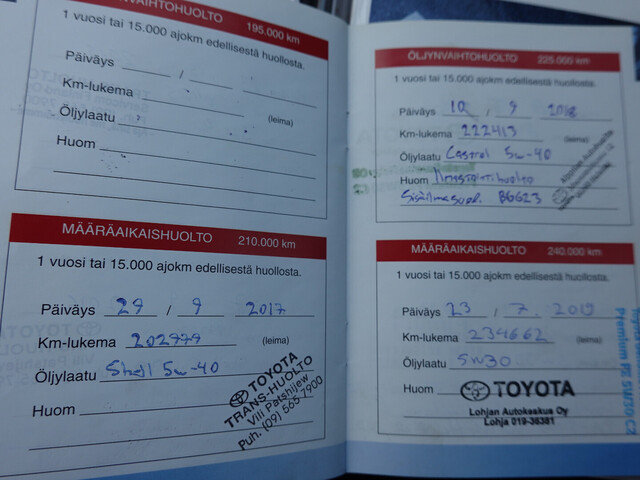 NVAIHTOHUOLTO 195.000 km
1 vuosi tai 15.000 ajokm edellisestä huollosta.
Päiväys / /
Km-lukema
(leima)
Öljylaatu
Huom
MÄÄRÄAIKAISHUOLTO 210.000 km
1 vuosi tai 15.000 ajokm edellisestä huollosta.
Päiväys 29 / 9 2017
Km-lukema 202979
(leima)
Öljylaatu Shell 5w-40
Huom
TOYOTA
TRANS-HUOLTO
Vili Patshijew
Puh. (09) 565 7900
ÖLJYNVAIHTOHUOLTO 225.000 km
1 vuosi tai 15.000 ajokm edellisestä huollosta.
Päiväys 10 / 9 2018
Km-lukema 222413
(leima)
Öljylaatu Castrol 5w-40
Huom Ilmastointihuolto
Sisäilmasuod. B6623
MÄÄRÄAIKAISHUOLTO 240.000 km
1 vuosi tai 15.000 ajokm edellisestä huollosta.
Päiväys 23 / 7 2019
Km-lukema 234662
(leima)
Öljylaatu 5W30
Huom
TOYOTA
Lohjan Autokeskus Oy
Lohja 019-36381
Premium FE 5W30 C2